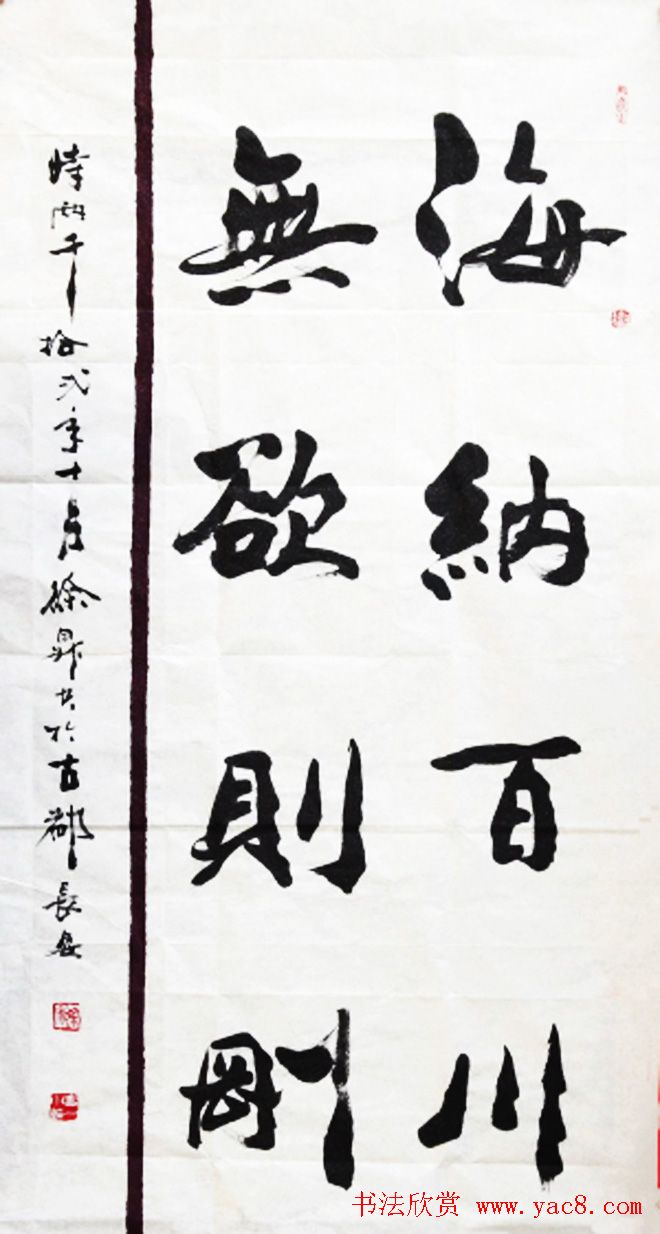 海納百川
無欲則剛
時兩千拾弍年十月徐鼎共於古都長安
书法欣赏 www.yac8.com